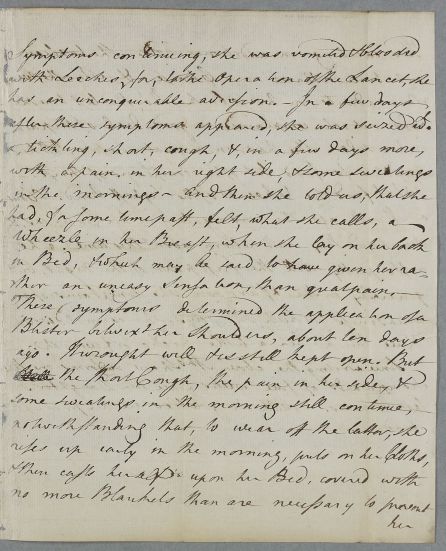 Symptoms continuing, she was vomited & blooded
with Leeches, for, to the Operation of the Lancet, she
has an unconquerable aversion. - In a few days
after these symptoms appeared, she was seized wt. a
tickling, short, cough, &, in a few days more,
with a pain, in her right side, & some sweatings
in the mornings - and then she told us, that she
had, for some time past, felt what she calls, a
Wheezle in her Breast, when she lay on her back
in Bed, & which may be said to have given her ra-
ther an uneasy Sensation, than great pain. -
These symptoms determined the application of a
Blister betwixt her Shoulders, about ten days
ago. It wrought well & is still kept open. But
the short Cough, the pain in her side, &
some sweatings in the morning still continue,
notwithstanding that, to wear off the latter, she
rises up early in the morning, puts on her Cloths,
& then casts herself upon her Bed, covered with
no more Blankets than are necessary to prevent
her